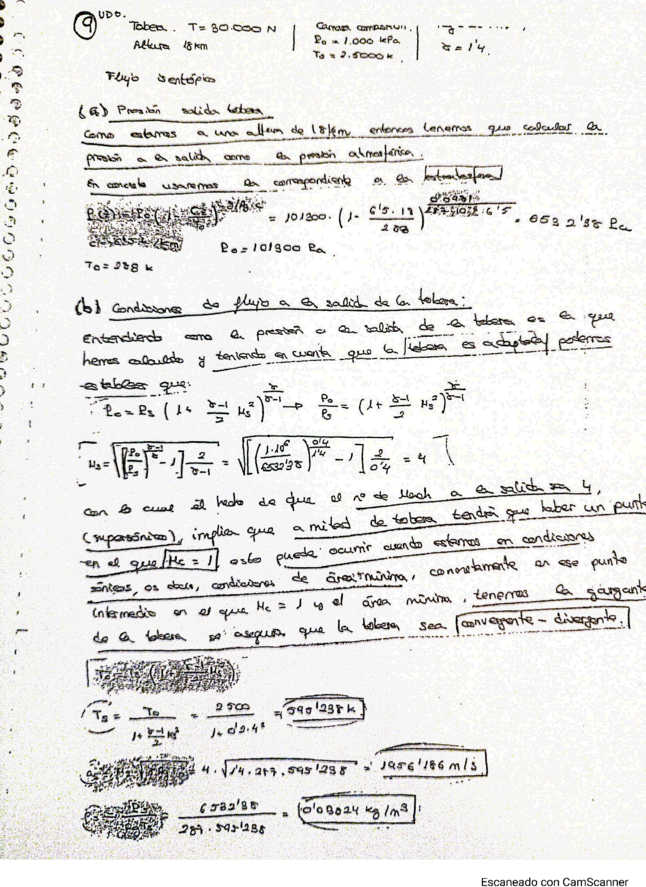 9 UDO.
Tobera. T = 30.000 N
Altura 18 km
Cámara combustión.
P₀ = 1.000 kPa
T₀ = 2.500 K
γ = 1'4
Flujo isentópico
(a) Presión salida tobera
Como estamos a una altura de 18 km, entonces tenemos que calcular la
presión a la salida como la presión atmosférica.
En concreto usaremos la correspondiente a la estratosfera
= 101300 · (1 - 6'5·18 / 288) = 6532'38 Pa
P₀ = 101300 Pa.
T₀ = 288 K
(b) Condiciones de flujo a la salida de la tobera:
Entendiendo como la presión a la salida de la tobera es la que
hemos calculado y teniendo en cuenta que la tobera es adaptada podemos
establecer que:
P₀ = Ps (1 + (γ-1)/2 Ms²)^(γ/(γ-1)) → P₀/Ps = (1 + (γ-1)/2 Ms²)^(γ/(γ-1))
Ms = √([(P₀/Ps)^((γ-1)/γ) - 1] 2/(γ-1)) = √([(1·10⁶/6532'38)^(0'4/1'4) - 1] 2/0'4) = 4
Con lo cual el hecho de que el nº de Mach a la salida sea 4,
(supersónico), implica que a mitad de tobera tendrá que haber un punto
en el que Mc = 1, esto puede ocurrir cuando estemos en condiciones
sónicas, es decir, condiciones de área mínima, concretamente en ese punto
intermedio en el que Mc = 1 y el área mínima, tenemos la garganta
de la tobera se asegura que la tobera sea convergente - divergente.
Ts = T₀ / (1 + (γ-1)/2 Ms²) = 2500 / (1 + 0'2·4²) = 595'238 K
= 4 · √(1'4·287·595'238) = 1956'186 m/s
= 6532'38 / (287·595'238) = 0'03824 kg/m³
Escaneado con CamScanner